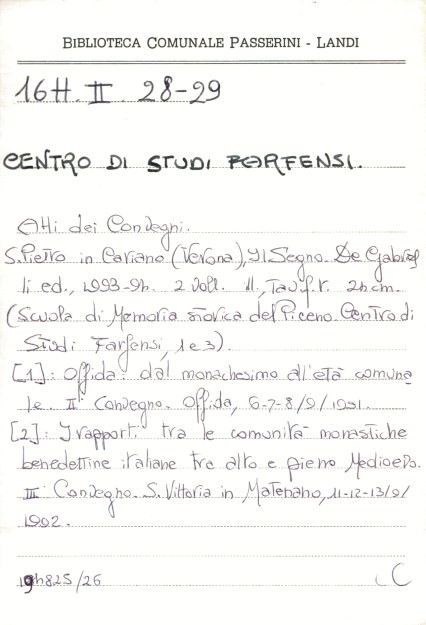 BIBLIOTECA COMUNALE PASSERINI - LANDI
16H. II 28-29
CENTRO DI STUDI FARFENSI.
Atti dei Convegni.
S. Pietro in Cariano (Verona), Il Segno. De Gabriel
li ed., 1993-94. 2 Voll. ill., Tav. f.r. 24 cm.
(Scuola di Memoria storica del Piceno. Centro di
Studi Farfensi, 1 e 3).
[1]: Offida: dal monachesimo all'età comuna
le. II° Convegno. Offida, 6-7-8/9/1991.
[2]: I rapporti tra le comunità monastiche
benedettine italiane tra alto e pieno Medioevo.
III° Convegno. S. Vittoria in Matenano, 11-12-13/9/
1992.
194825/26
C